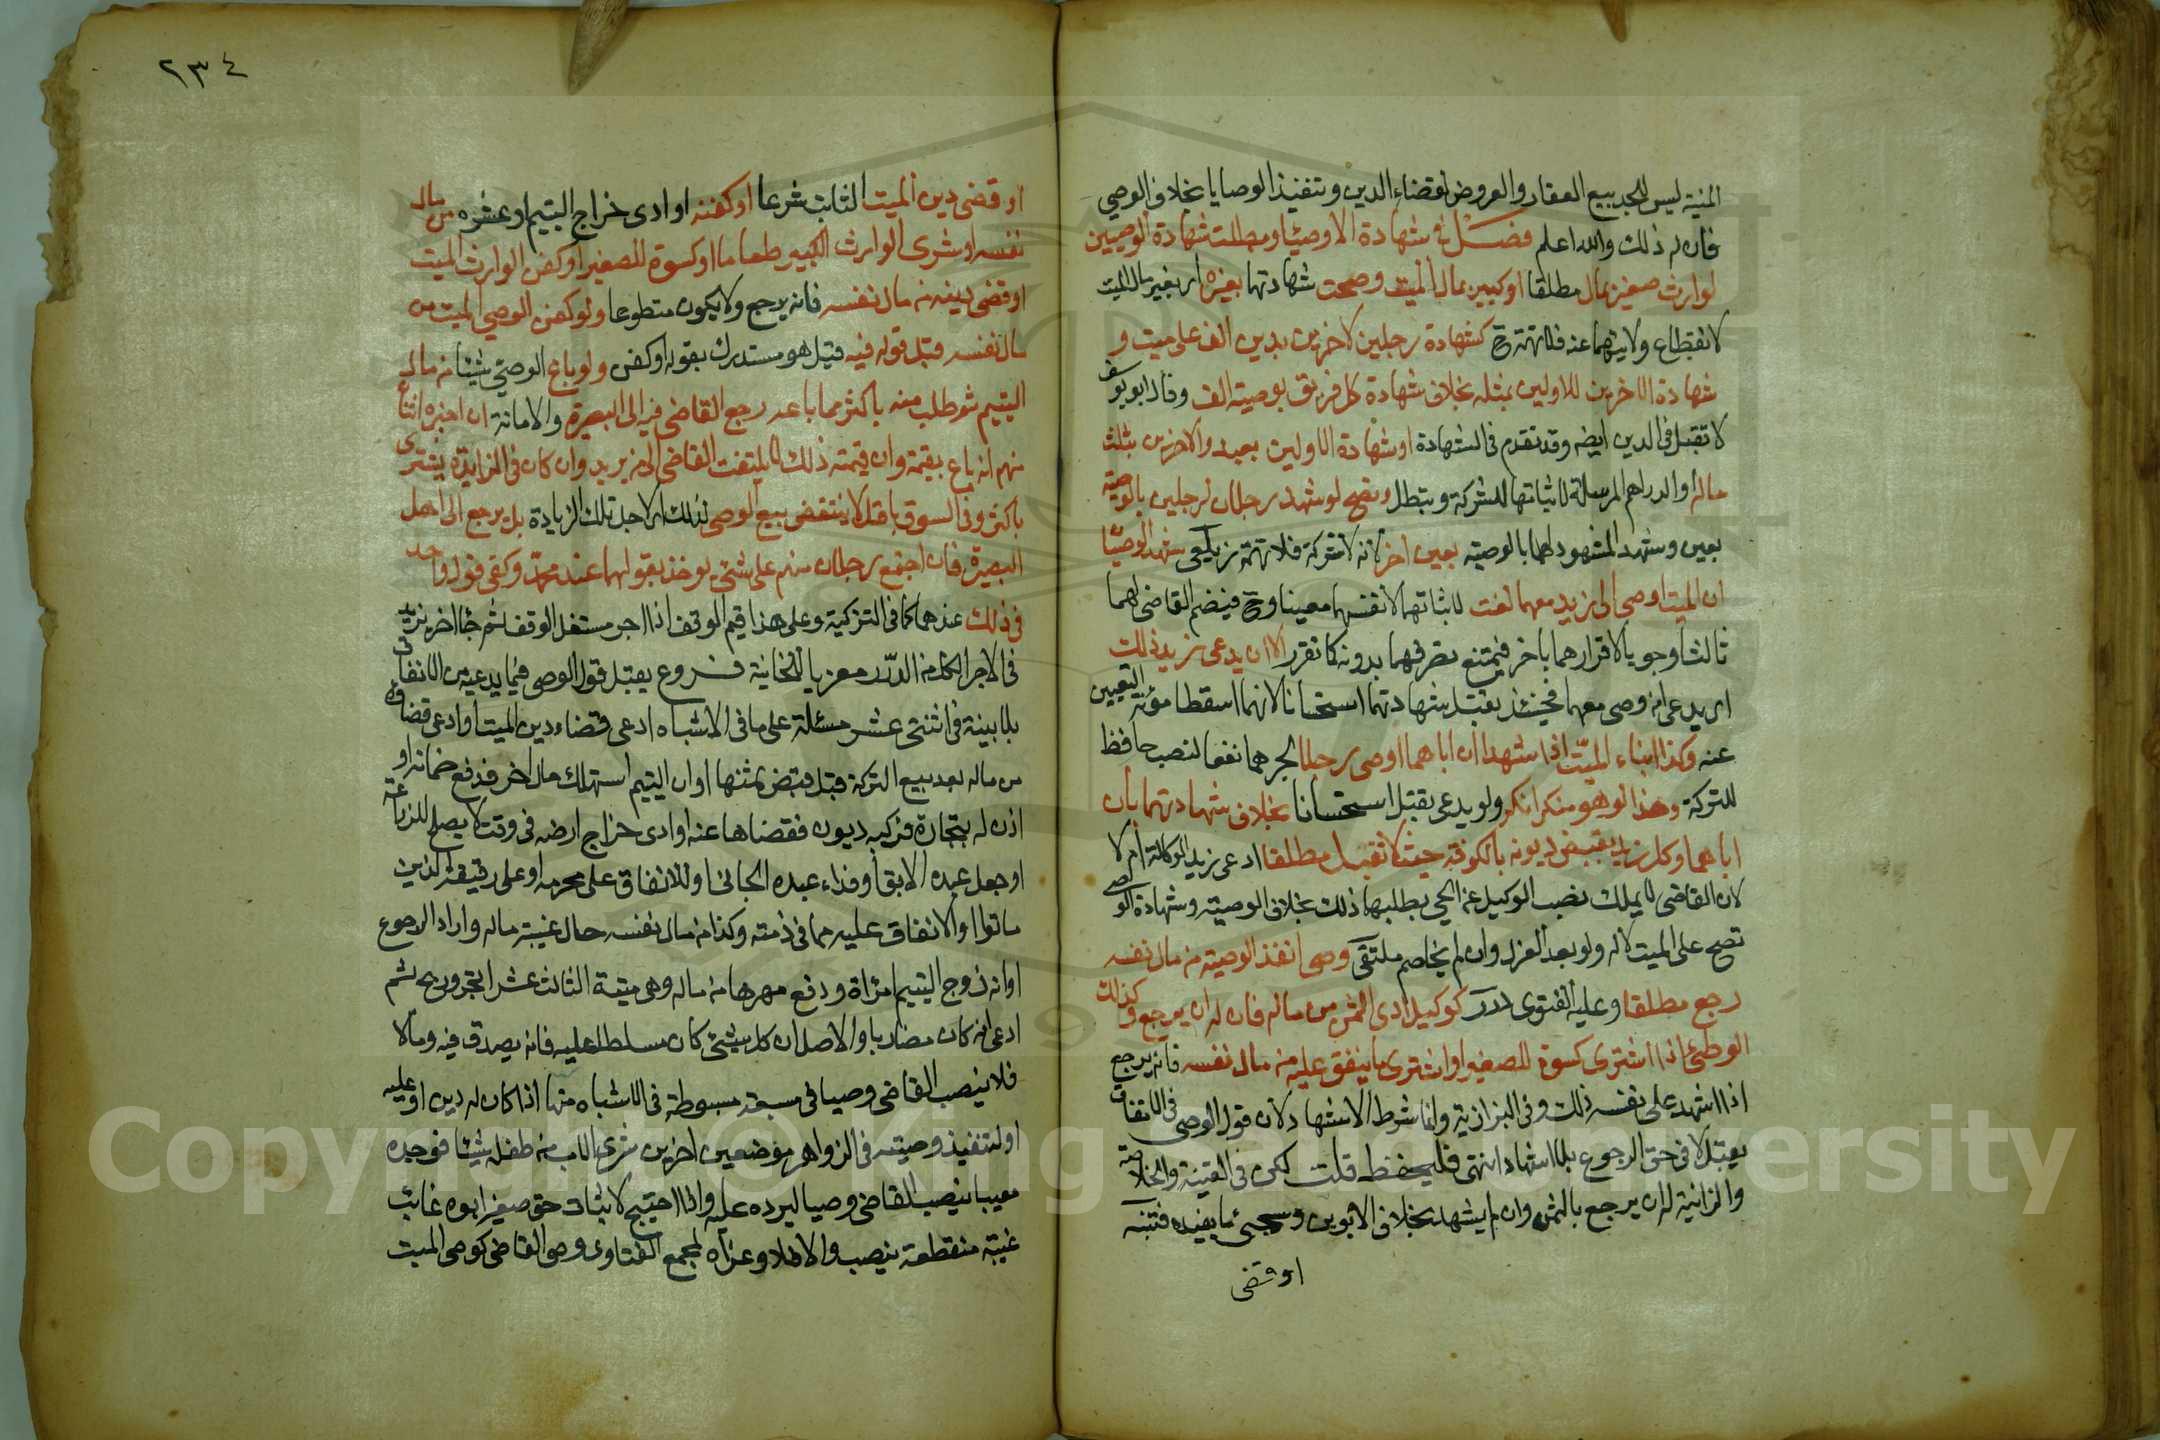 المنية ليس للجد بيع العقار والعروض لقضاء الدين وتنفيذ الوصايا بخلاف الوصي
فان له ذلك والله اعلم فصل في شهادة الاوصيا وبطلت شهادة الوصيين
لوارث صغير بمال مطلقا او كبير بمال الميت وصحت شهادتهما بغيره اي بغير مال الميت
لانقطاع ولايتهما عنه فلا تهمة ح كشهادة رجلين لاخرين بدين الف على ميت و
شهادة الاخرين للاولين بمثله بخلاف شهادة كل فريق بوصية الف وقال ابو يوسف
لا تقبل في الدين ايضه وقد تقدم في الشهادة او شهادة الاولين بعبد والاخرين بثلث
ماله او الدراهم المرسلة لاثباتها للشركة وتبطل وتصح لو شهد رجلان لرجلين بالوصية
بعين وشهد المشهود لهما بالوصية بعين اخر لانه لا شركة فلا تهمة زيلعي شهد الوصيا
ان الميت اوصى الى زيد معهما لغت لاثباتهما لانفسهما معينا وح فيضم القاضي لهما
ثالثا وجوبا لاقرارهما باخر فيمتنع تصرفهما بدونه كما تقرر الا ان يدعي زيد ذلك
اي يدعي انه وصي معهما فحينئذ تقبل شهادتهما استحسانا لانهما اسقطا مؤنة التعيين
عنه وكذا ابناء الميت اذا شهدا ان اباهما اوصى رجلا لجرهما نفعا لنصب حافظ
للتركة وهذا لو هو منكر انكر ولو يدعي تقبل استحسانا بخلاف شهادتهما بان
اباهما وكل زيدا بقبض ديونه بالكوفة حيث لا تقبل مطلقا ادعى زيد الوكالة ام لا
لان القاضي لا يملك نصب الوكيل عن الحي بطلبهما ذلك بخلاف الوصية وشهادة الوصي
تصح على الميت لا له ولو بعد العزل وان لم يخاصم ملتقى وصي انفذ الوصية من مال نفسه
رجع مطلقا وعليه الفتوى درر كوكيل ادى الثمن من ماله فان له ان يرجع وكذلك
الوصي اذا اشترى كسوة للصغير او اشترى ما ينفق عليه من مال نفسه فانه يرجع
اذا اشهد على نفسه ذلك وفي البزازية وانما شرط الاشهاد لان قول الوصي في الانفاق
يقبل لا في حق الرجوع بلا اشهاد انتهى فليحفظ قلت لكن في القنية والخلاصة
والخانية له ان يرجع بالثمن وان لم يشهد بخلاف الابوين وسيجئ ما يفيده فتنبه
او قضى
٢٣٤
او قضى دين الميت الثابت شرعا او كفنه او ادى خراج اليتيم او عشره من مال
نفسه او شرى الوارث الكبير طعاما او كسوة للصغير او كفن الوارث الميت
او قضى دينه من مال نفسه فانه يرجع ولا يكون متطوعا ولو كفن الوصي الميت من
مال نفسه قبل قوله فيه قيل هو مستدرك بقوله او كفن ولو باع الوصي شيئا من مال
اليتيم ثم طلب منه باكثر مما باعه رجع القاضي فيه الى اهل البصيرة والامانة ان اخبره اثنان
منهم انه باع بقيمته وان قيمته ذلك لا يلتفت القاضي الى من يزيد وان كان في المزايدة يشترى
باكثر وفي السوق باقل لا ينتقض بيع الوصي لذلك اي لاجل تلك الزيادة بل يرجع الى اهل
البصيرة فان اجتمع رجلان منهم على شئ يؤخذ بقولهما عند محمد وكفى قول واحد
في ذلك عندهما كما في التزكية وعلى هذا قيم الوقف اذا اجر مستغل الوقف ثم جا اخر يزيد
في الاجر الكل من الدرر معزيا للخانية فروع يقبل قول الوصي فيما يدعيه من الانفاق
بلا بينة في اثنتي عشر مسئلة على ما في الاشباه ادعى قضاء دين الميت او ادعى قضاؤه
من ماله بعد بيع التركة قبل قبض ثمنها او ان اليتيم استهلك مال اخر فدفع ضمانه او
اذن له بتجارة فركبه ديون فقضاها عنه او ادى خراج ارضه في وقت لا يصلح للزراعة
او جعل عبده الابق او فداء عبده الجاني او للانفاق على محرمه او على رقيقه الذين
ماتوا او الانفاق عليه مما في ذمته وكذا من مال نفسه حال غيبة ماله واراد الرجوع
او انه زوج اليتيم امراة ودفع مهرها من ماله وهي ميتة الثالث عشر اتجر وربح ثم
ادعى انه كان مضاربا والاصل ان كل شئ كان مسلطا عليه فانه يصدق فيه وما لا
فلا ينصب القاضي وصيا في سبعة مبسوطة في الاشباه منها اذا كان له دين او عليه
او لتنفيذ وصيته في الزواهر موضعين اخرين شرى الاب من طفله شيئا فوجده
معيبا ينصب القاضي وصيا ليرده عليه واذا احتيج لاثبات حق صغير ابوه غائب
غيبة منقطعة ينصب والا فلا وعزاه لمجمع الفتاوى وصي القاضي كوصي الميت
Copyright © King Saud University